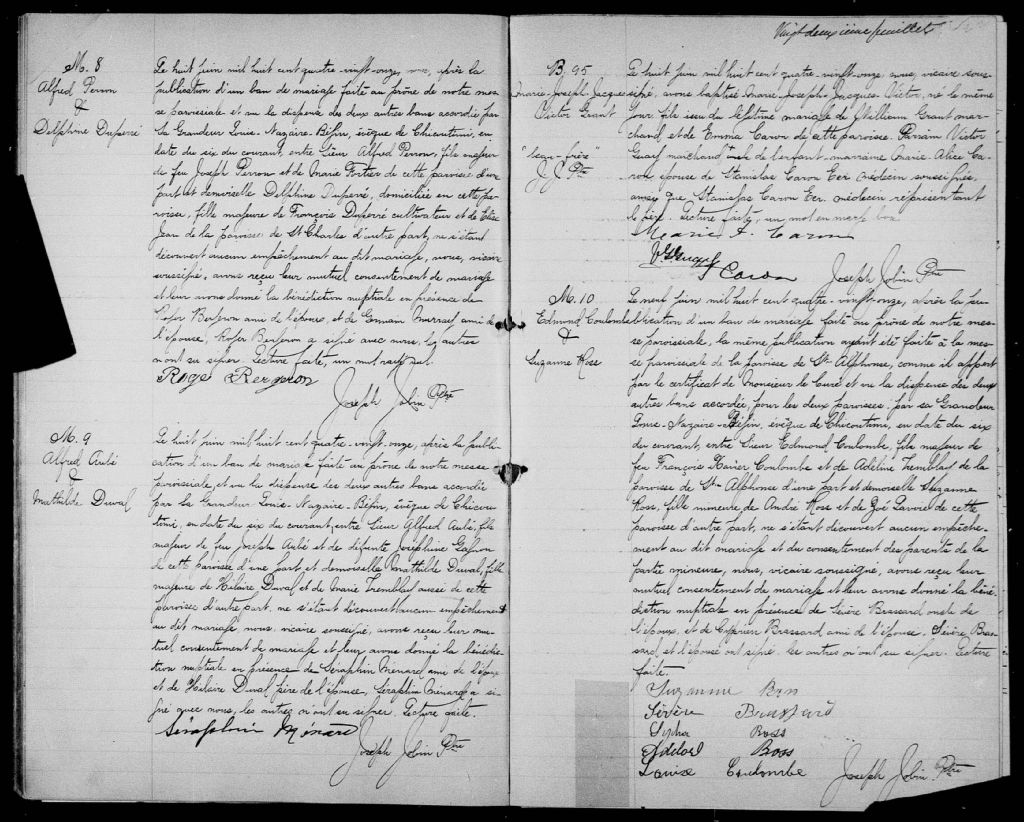 M. 8
Alfred Perron
&
Delphine Duperré
Le huit juin mil huit cent quatre-vingt-onze, après la
publication d'un ban de mariage faite au prône de notre mes-
se paroissiale et vu la dispense des deux autres bans accordée par
Sa Grandeur Louis-Nazaire Bégin, évêque de Chicoutimi, en
date du six du courant, entre Sieur Alfred Perron, fils majeur
de feu Joseph Perron et de Marie Fortier de cette paroisse d'une
part et demoiselle Delphine Duperré, domiciliée en cette pa-
roisse, fille majeure de François Duperré cultivateur et de Elise
Jean de la paroisse de St Charles d'autre part, ne s'étant
découvert aucun empêchement au dit mariage, nous, vicaire
soussigné, avons reçu leur mutuel consentement de mariage
et leur avons donné la bénédiction nuptiale en présence de
Roger Bergeron ami de l'époux, et de Germain ami de
l'épouse, Roger Bergeron a signé avec nous, les autres
n'ont su signer. Lecture faite, un mot rayé nul.
Roge Bergeron
Joseph Jobin Ptre
M. 9
Alfred Aubé
&
Mathilde Duval
Le huit juin mil huit cent quatre-vingt-onze, après la publi-
cation d'un ban de mariage faite au prône de notre messe
paroissiale, et vu la dispense des deux autres bans accordée
par Sa Grandeur Louis-Nazaire Bégin, évêque de Chicou-
timi, en date du six du courant, entre Sieur Alfred Aubé, fils
majeur de feu Joseph Aubé et de défunte Joséphine Gagnon
de cette paroisse d'une part et demoiselle Mathilde Duval, fille
majeure de Hilaire Duval et de Marie Tremblay aussi de cette
paroisse d'autre part, ne s'étant découvert aucun empêchement
au dit mariage, nous, vicaire soussigné, avons reçu leur mu-
tuel consentement de mariage et leur avons donné la bénédic-
tion nuptiale en présence de Séraphin Ménard ami de l'époux
et de Hilaire Duval père de l'épouse, Séraphin Ménard a si-
gné avec nous, les autres n'ont su signer. Lecture faite.
Séraphin Ménard
Joseph Jobin Ptre
Vingt deuxième feuillet
B. 95
Marie-Joseph-Jacques
Victor Grant
"beau-frère"
J. J. Ptre
Le huit juin mil huit cent quatre-vingt-onze, nous, vicaire sous-
signé, avons baptisé Marie-Joseph-Jacques-Victor, né le même
jour, fils issu du légitime mariage de William Grant mar-
chand, et de Emma Caron de cette paroisse. Parrain Victor
marchand oncle de l'enfant, marraine Marie-Alice Ca-
ron épouse de Stanislas Caron Ecr médecin soussignés,
ainsi que Stanislas Caron Ecr. médecin représentant
le père. Lecture faite, un mot en marge bon.
Marie A. Caron
S Caron
Joseph Jobin Ptre
M. 10
Edmond Coulombe
&
Suzanne Ross
Le neuf juin mil huit cent quatre-vingt-onze, après la pu-
blication d'un ban de mariage faite au prône de notre mes-
se paroissiale, la même publication ayant été faite à la mes-
se paroissiale de la paroisse de St-Alphonse, comme il appert
par le certificat de Monsieur le Curé et vu la dispense des deux
autres bans accordée, pour les deux paroisses, par sa Grandeur
Louis-Nazaire-Bégin, évêque de Chicoutimi, en date du six
du courant, entre Sieur Edmond Coulombe, fils majeur de
feu François Xavier Coulombe et de Adéline Tremblay de la
paroisse de St-Alphonse d'une part et demoiselle Suzanne
Ross, fille mineure de André Ross et de Zoé Lavoie de cette
paroisse d'autre part, ne s'étant découvert aucun empêche-
ment au dit mariage et du consentement des parents de la
partie mineure, nous, vicaire soussigné, avons reçu leur
mutuel consentement de mariage et leur avons donné la béné-
diction nuptiale en présence de Sévère Brassard oncle de
l'époux, et de Cyprien Brassard ami de l'épouse. Sévère Bras-
sard, et l'épouse ont signé. Les autres n'ont su signer. Lecture
faite.
Suzanne Ross
Sévère Brassard
Ross
Adelor Ross
Louise Coulombe
Joseph Jobin Ptre